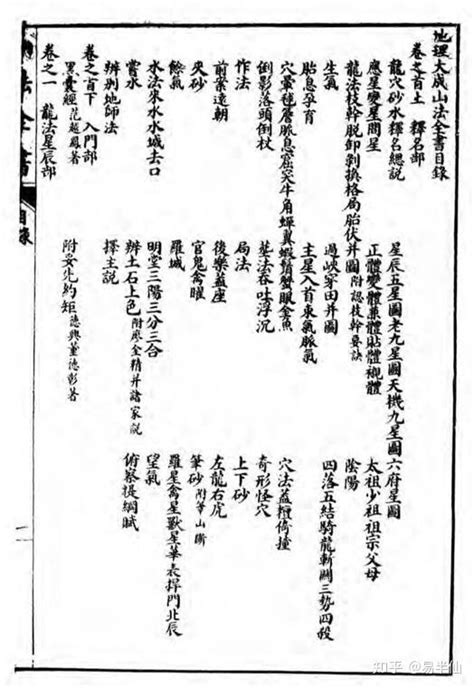 地理大成山法全書目錄
卷之首上 釋名部
龍穴砂水釋名總說 星辰五星圖老九星圖天機九星圖六府星圖
應星變星閒星 正體變體兼體貼體襯體 太祖少祖祖宗父母
龍法枝幹脫卸剝換格局胎伏并圖附認枝幹要訣 陰陽
生氣 過峽穿田并圖 四落五結騎龍斬關三勢四殺
胎息孕育 主星入首束氣脈氣
穴暈種層脈息窟突牛角蟬翼蝦鬚蟹眼金魚 穴法蓋倚撞
倒影落頭倒杖 基法吞吐浮沉 奇形怪穴
作法 局法 上下砂
前案遠朝 後樂蓋座 左龍右虎
夾砂 官鬼禽曜 筆砂附筆山斷
餘氣 羅城 羅星禽星獸星華表捍門北辰
水法來水水城去口 明堂三陽三分三合 望氣
嘗水 辨土石上色附廖金精并諸家說 俯察提綱賦
辨地師法 擇主說
卷之首下 入門部
黑囊經 范越鳳著 附妥先約矩 德興董德彰著
卷之一 龍法星辰部
法全書 目錄
知乎 @易半仙